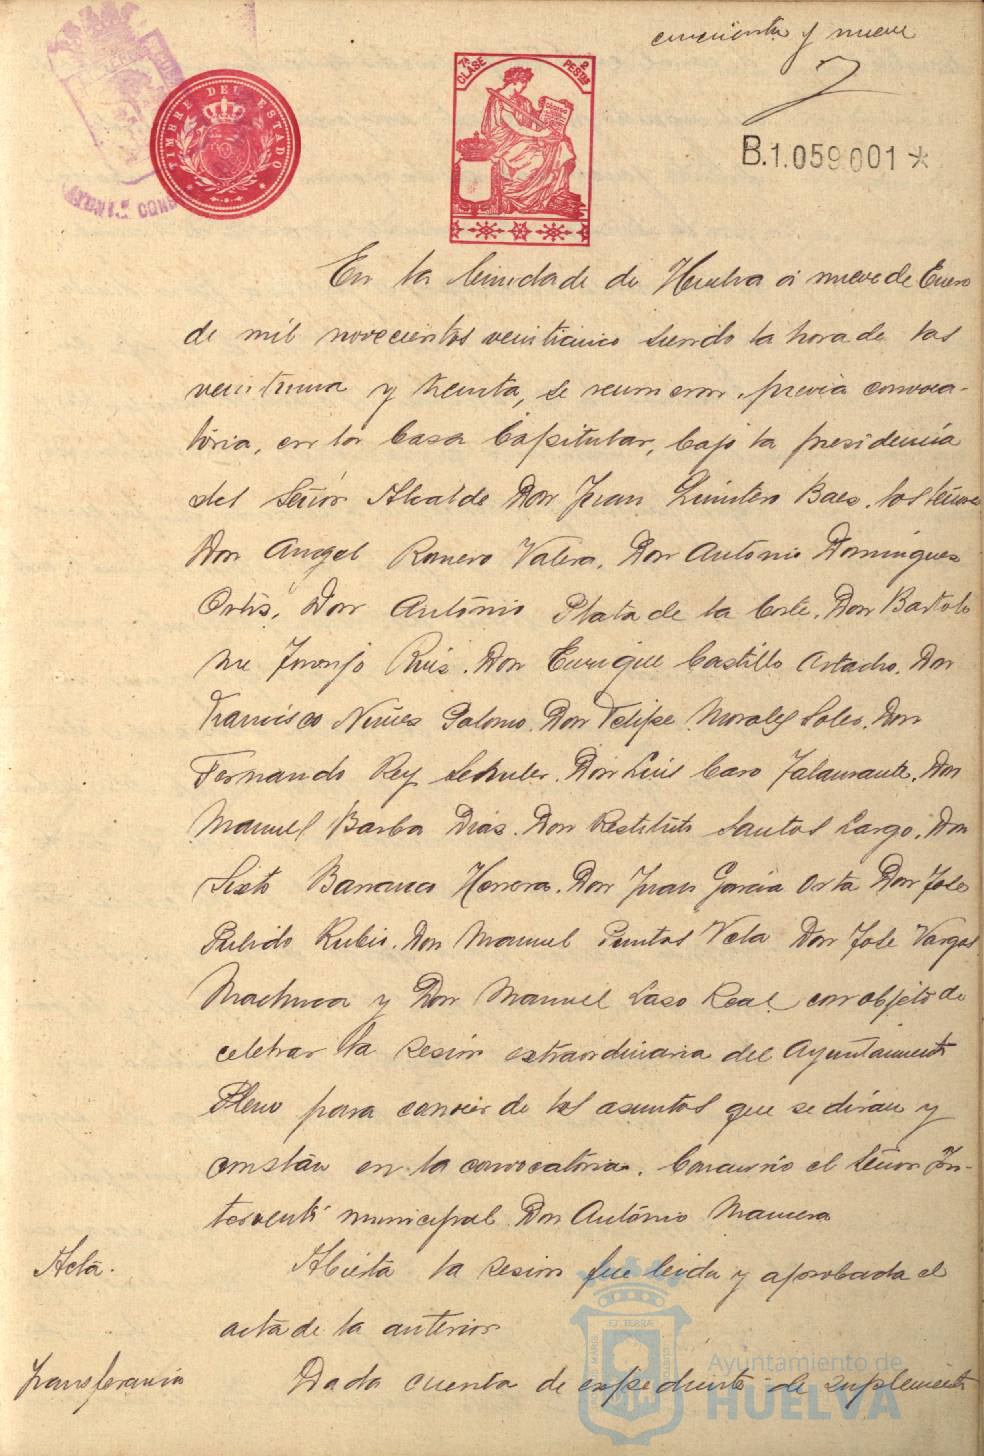 cincuenta y nueve
TIMBRE DEL ESTADO
7ª CLASE
2 PESTAS
B.1.059.001 *
En la Ciudad de Huelva a nueve de Enero
de mil novecientos veinticinco siendo la hora de las
veintiuna y treinta, se reunieron, previa convoca-
toria, en la Casa Capitular, bajo la presidencia
del Señor Alcalde Don Juan Quintero Baez, los señores
Don Angel Romero Valera, Don Antonio Dominguez
Ortiz, Don Antonio Plata de la Corte, Don Bartolo
me Toronjo Ruiz, Don Enrique Castillo Artacho, Don
Francisco Nuñez Palomo, Don Felipe Morales Soler, Don
Fernando Rey Don Luis Caro Don
Manuel Barba Diaz, Don Restituto Santos Largo, Don
Sixto Barranco Herrera, Don Juan Garcia Orta Don Jose
Pulido Rubio, Don Manuel Puntas Vela Don Jose Vargas
Machuca y Don Manuel Laso Real con objeto de
celebrar la sesion extraordinaria del Ayuntamiento
Pleno para conocer de los asuntos que se diran y
constan en la convocatoria. Concurrio el Señor In-
tervent municipal Don Antonio
Acta.
Abierta la sesion fue leida y aprobada el
acta de la anterior
Transferencia
Dada cuenta de expediente de suplemento
Ayuntamiento de
HUELVA